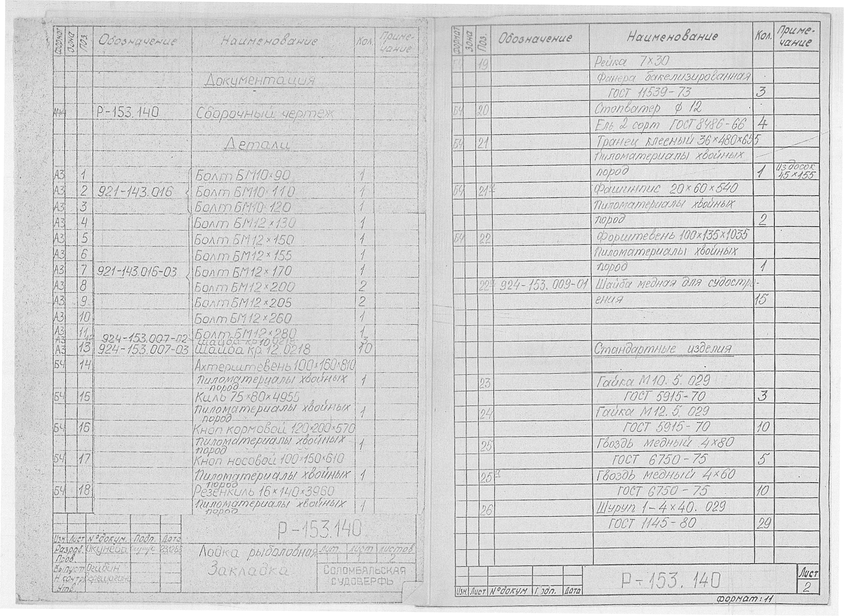 Формат Зона Поз. Обозначение Наименование Кол. Примечание
Документация
Р-153.140 Сборочный чертеж
Детали
А3 1 Болт БМ10×90 1
А3 2 921-143.016 Болт БМ10×110 1
А3 3 Болт БМ10×120 1
А3 4 Болт БМ12×130 1
А3 5 Болт БМ12×150 1
А3 6 Болт БМ12×155 1
А3 7 921-143.016-03 Болт БМ12×170 1
А3 8 Болт БМ12×200 2
А3 9 Болт БМ12×205 2
А3 10 Болт БМ12×260 1
А3 11 Болт БМ12×280 1
А3 924-153.007-02 Шайба
А3 13 924-153.007-03 Шайба кр.12.0218 10
БЧ 14 Ахтерштевень 100×150×810
Пиломатериалы хвойных
пород 1
БЧ 15 Киль 75×80×4955
Пиломатериалы хвойных
пород 1
БЧ 16 Кноп кормовой 120×200×570
Пиломатериалы хвойных
пород 1
БЧ 17 Кноп носовой 100×150×610
Пиломатериалы хвойных
пород 1
БЧ 18 Резенкиль 16×140×3960
Пиломатериалы хвойных
пород 1
Р-153.140.
Изм Лист № докум. Подп. Дата
Разраб. Окунева
Пров.
Лодка рыболовная
Закладка
Лит. Лист Листов
Соломбальская
судоверфь
Формат Зона Поз. Обозначение Наименование Кол. Примечание
19 Рейка 7×30
Фанера бакелизированная
ГОСТ 11539-73 3
БЧ 20 Стопватер ф 12
Ель 2 сорт ГОСТ 8486-66 4
БЧ 21 Транец клееный 36×480×695
Пиломатериалы хвойных
пород 1 из досок 45×155
БЧ 21а Фашинпис 20×60×540
Пиломатериалы хвойных
пород 2
БЧ 22 Форштевень 100×135×1035
Пиломатериалы хвойных
пород 1
22а 924-153.009-01 Шайба медная для судостро-
ения 15
Стандартные изделия
23 Гайка М10.5.029
ГОСТ 5915-70 3
24 Гайка М12.5.029
ГОСТ 5915-70 10
25 Гвоздь медный 4×80
ГОСТ 6750-75 5
25а Гвоздь медный 4×60
ГОСТ 6750-75 10
26 Шуруп 1-4×40.029
ГОСТ 1145-80 29
Изм Лист № докум Подп. Дата
Р-153.140
Лист
2
Формат: 11